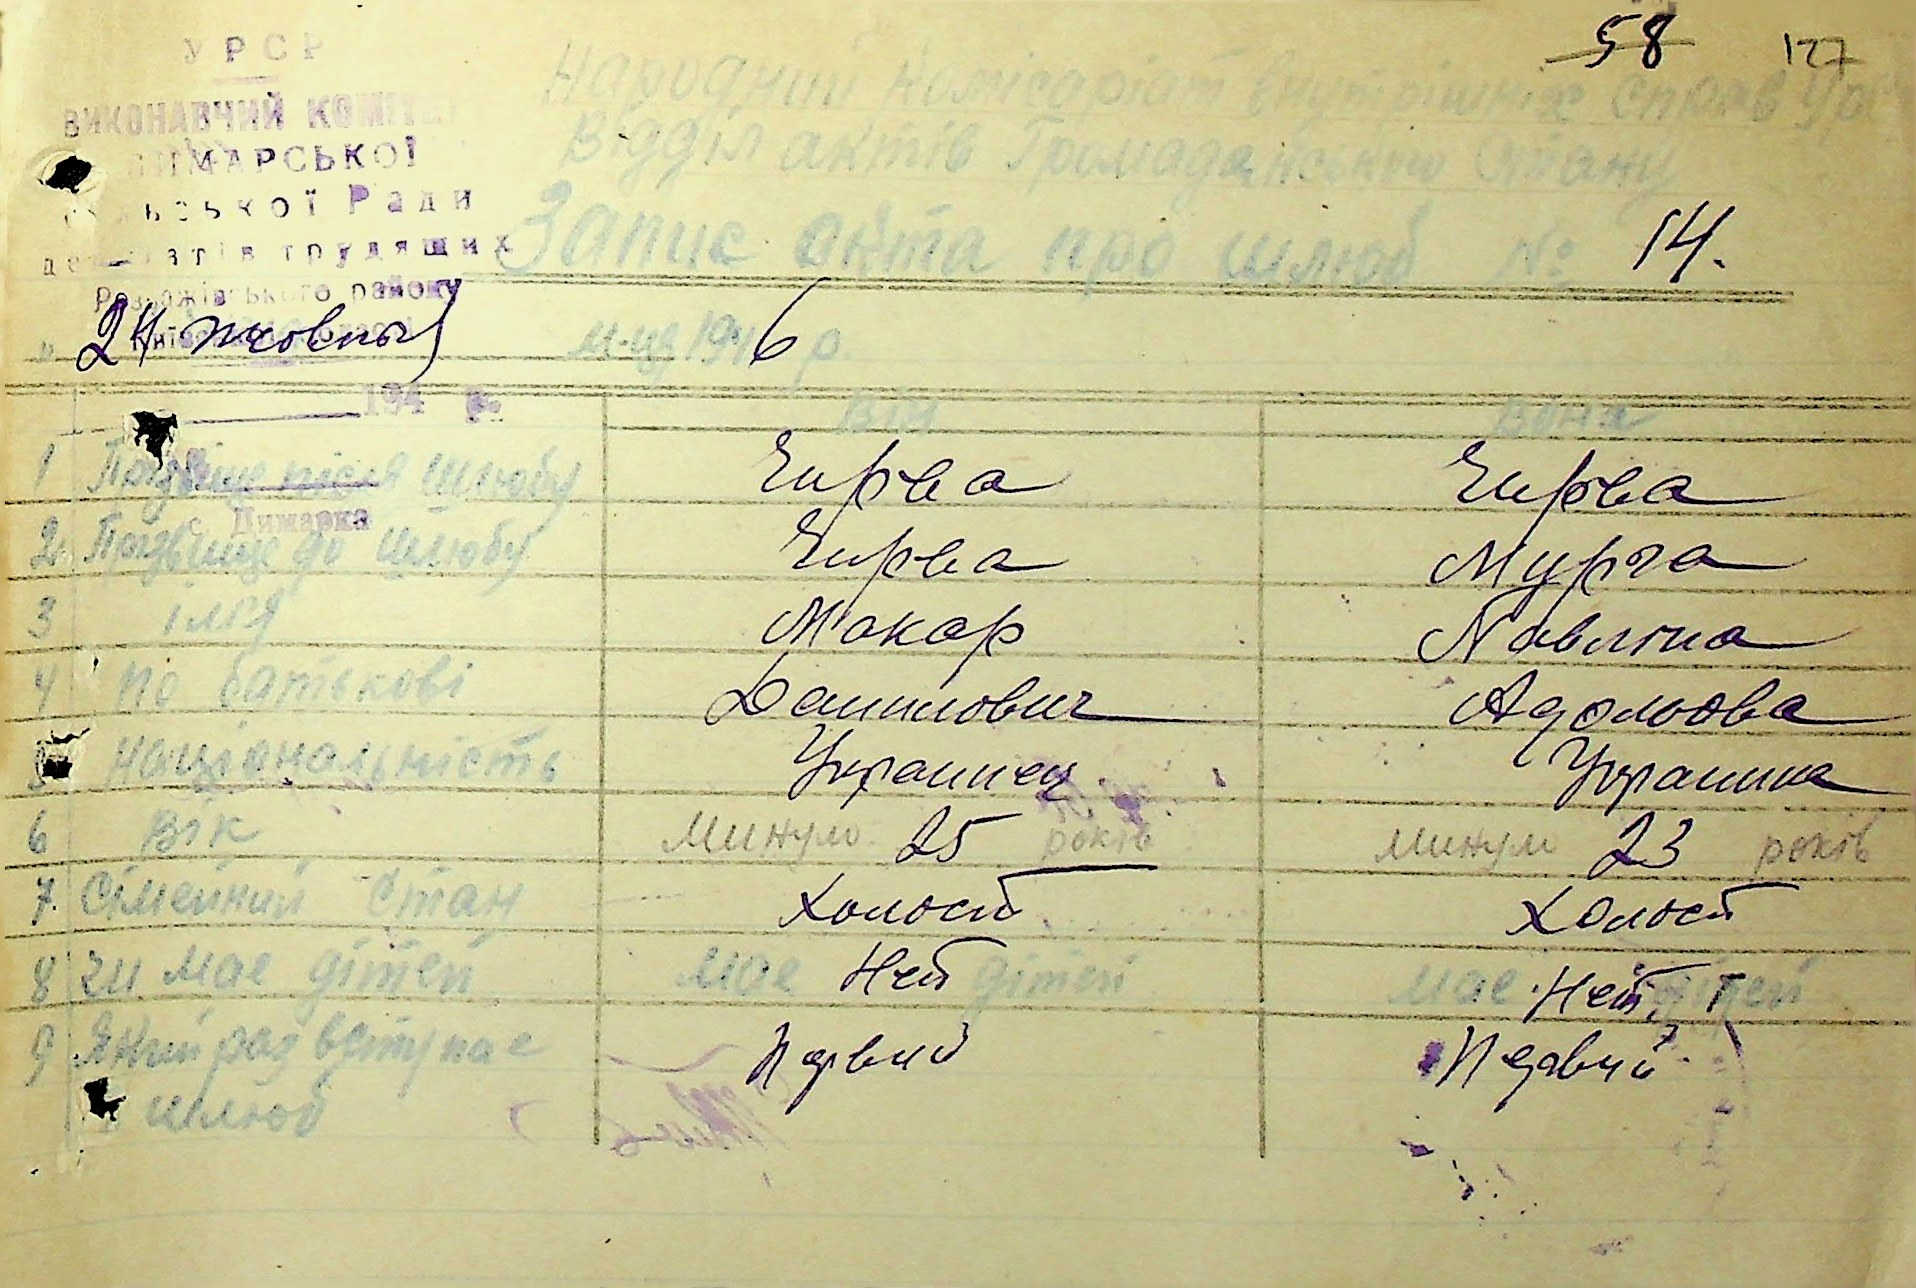 58 127
УРСР
ВИКОНАВЧИЙ КОМІТЕ
ДИМАРСЬКОЇ
сільської Ради
депутатів трудящих
Розважівського району
194 р.
с. Димарка
Народний Комісаріат внутрішніх справ УР
Відділ актів Громадянського Стану
Запис акта про шлюб № 14.
" 24 жовтня м-ця 1946 р
Він Вона
1 Прізвище після шлюбу Чирва Чирва
2 Прізвище до шлюбу Чирва Мурга
3 імя Макар Павлина
4 по батькові Данилович Адольфова
5 національність Украинец Украинка
6 вік минуло 25 років минуло 23 років
7. Сімейний стан холост холост
8 чи має дітей має Нет дітей має Нет дітей
9 Який раз вступає Первий Первий
в шлюб